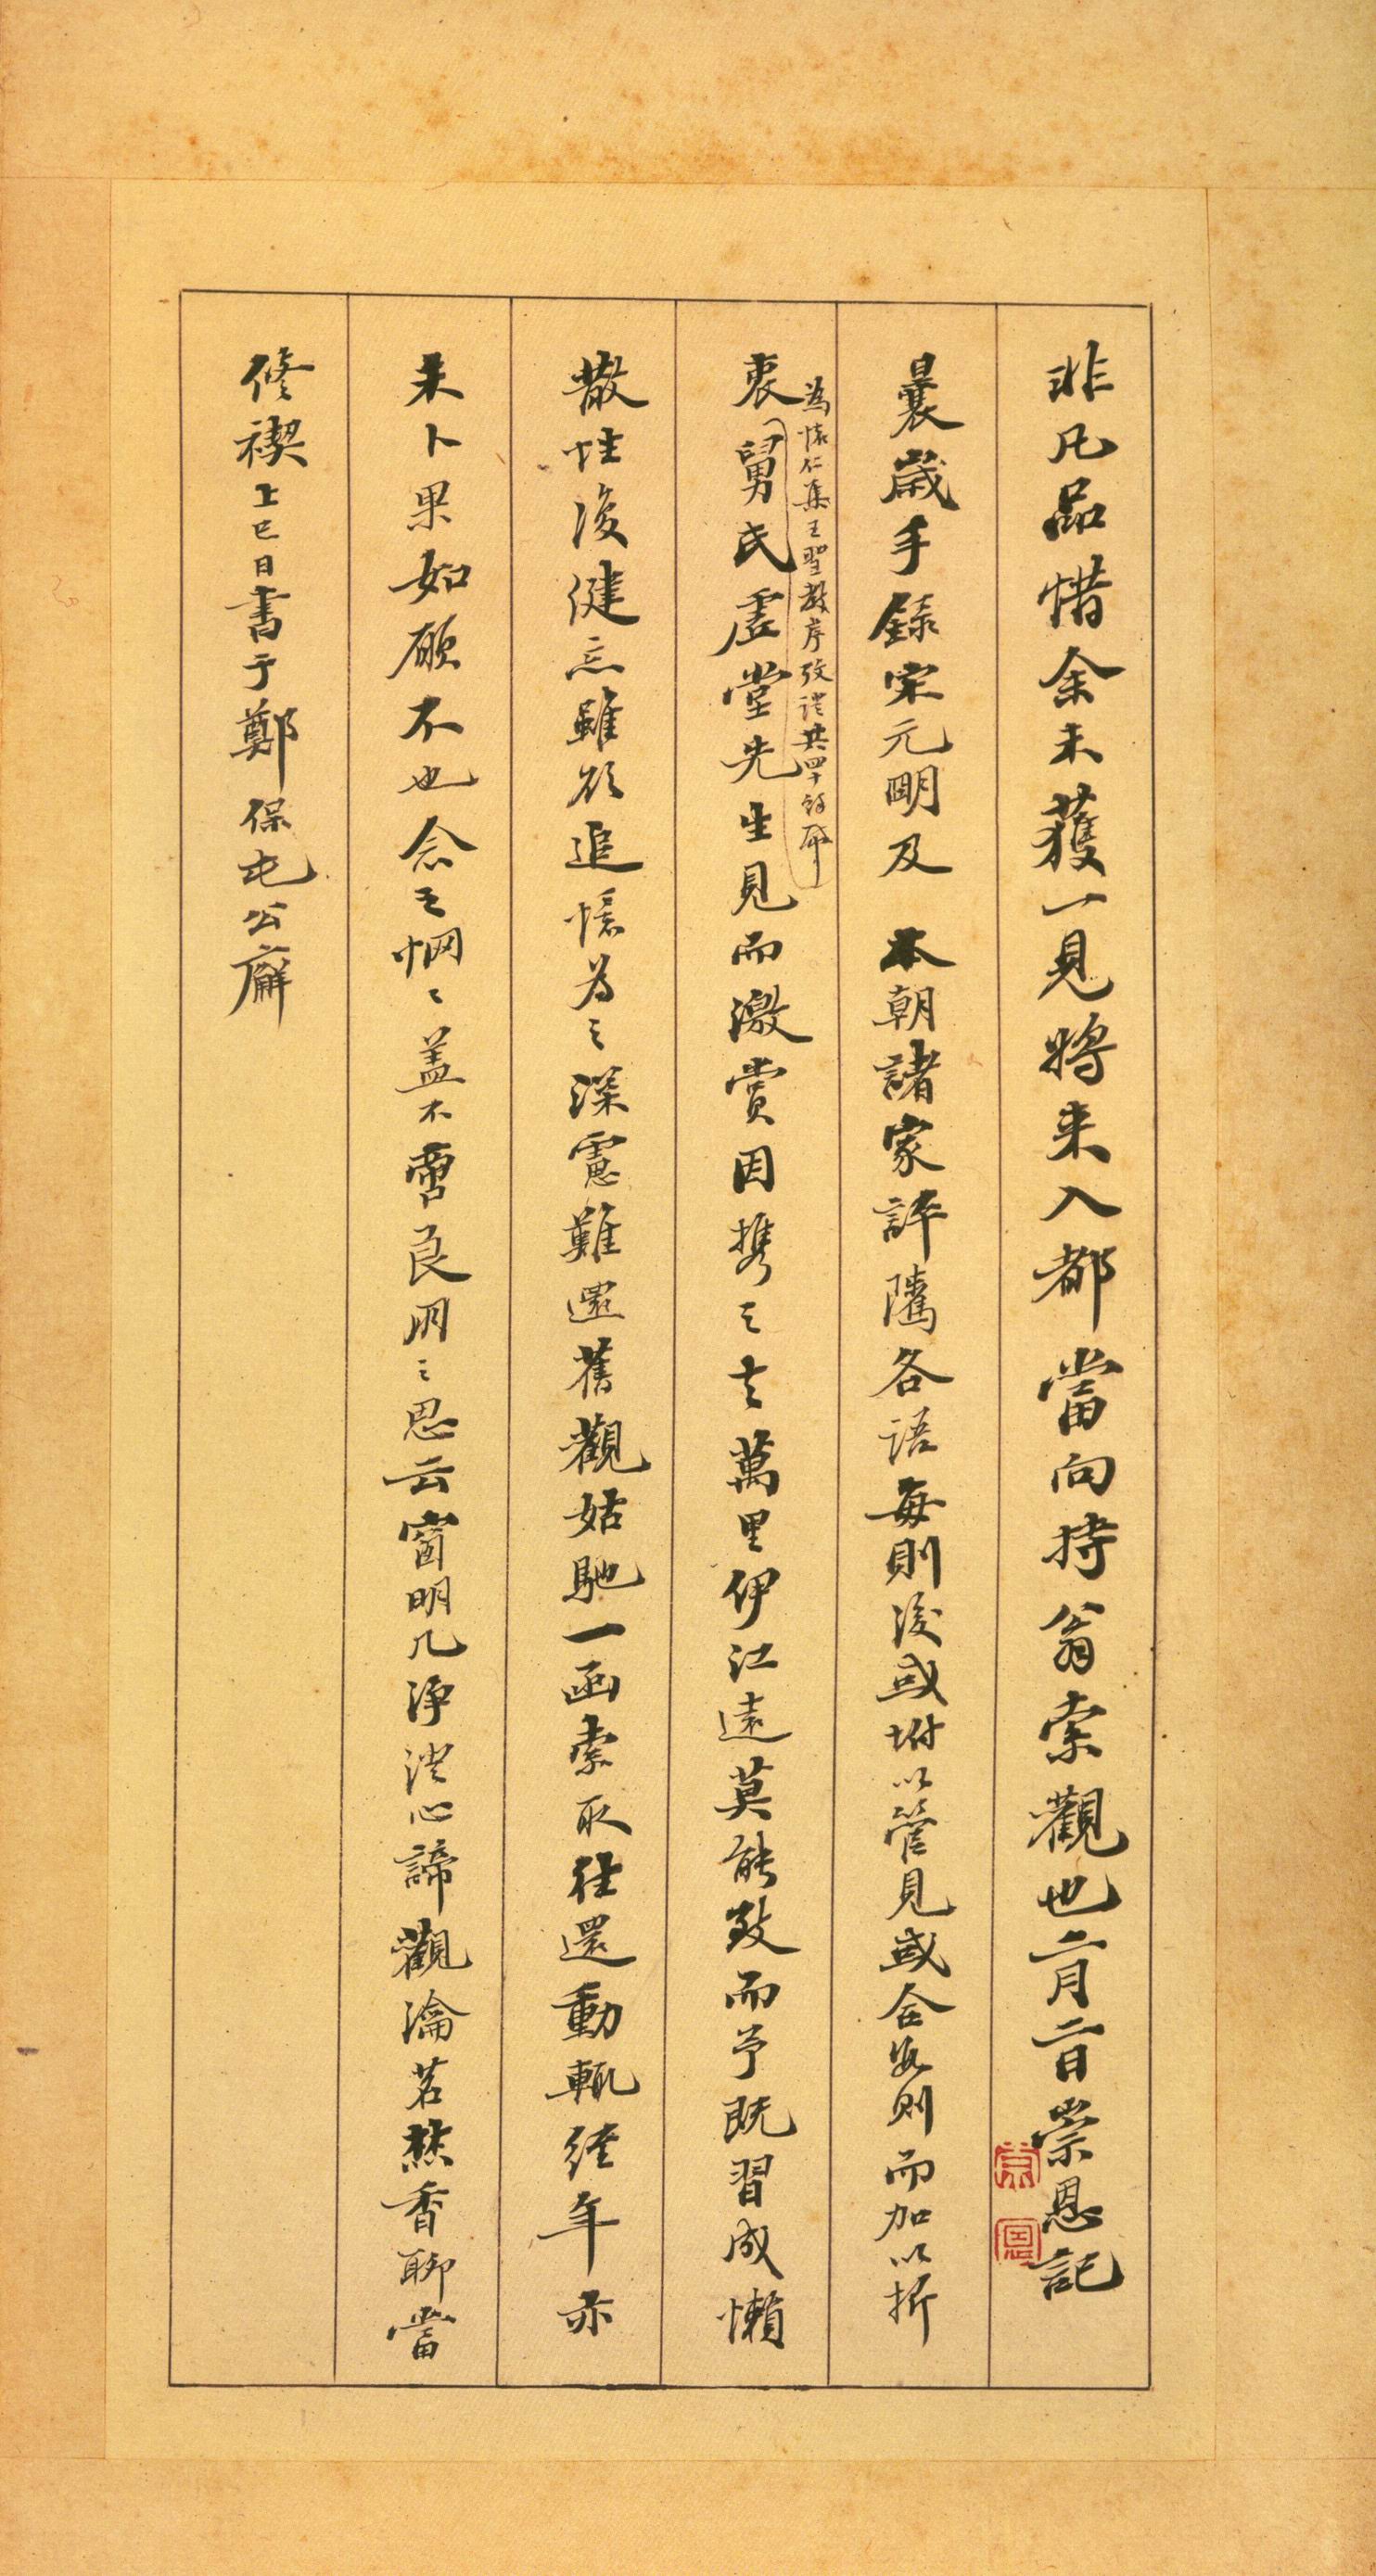 非凡品惜余未獲一見將来入都當向持翁索觀也二月二日崇恩記
崇恩
曩歲手錄宋元明及本朝諸家評隲各語每則後或坿以管見或合數則而加以折
為懷仁集王聖教序攷證共四十餘帋
衷舅氏虛堂先生見而激賞因攜之去萬里伊江遠莫能致而予既習成懶
散性復健忘雖欲追憶為之深慮難還舊觀姑馳一函索取往還動輒經年亦
未卜果如願不也念之惘〻蓋不啻良朋之思云窗明几淨澄心諦觀瀹茗爇香聊當
修禊上巳日書于鄭保屯公廨